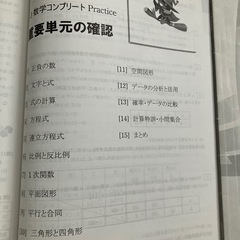 数学コンプリート Practice
重要単元の確認
正負の数
文字と式
式の計算
方程式
連立方程式
比例と反比例
1次関数
平面図形
平行と合同
三角形と四角形
[11] 空間図形
[12] データの分析と活用
[13] 確率・データの比較
[14] 計算特訓・小問集合
[15] まとめ